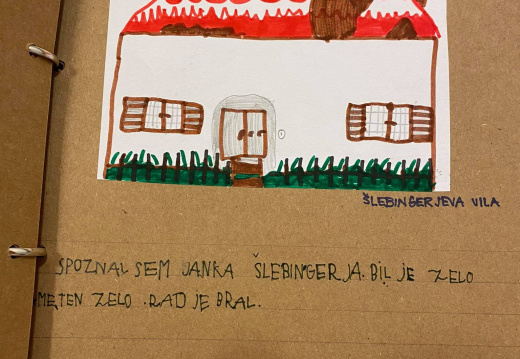 ŠLEBINGERJEVA VILA
SPOZNAL SEM JANKA ŠLEBINGERJA. BIL JE ZELO
PAMETEN ZELO . RAD JE BRAL.